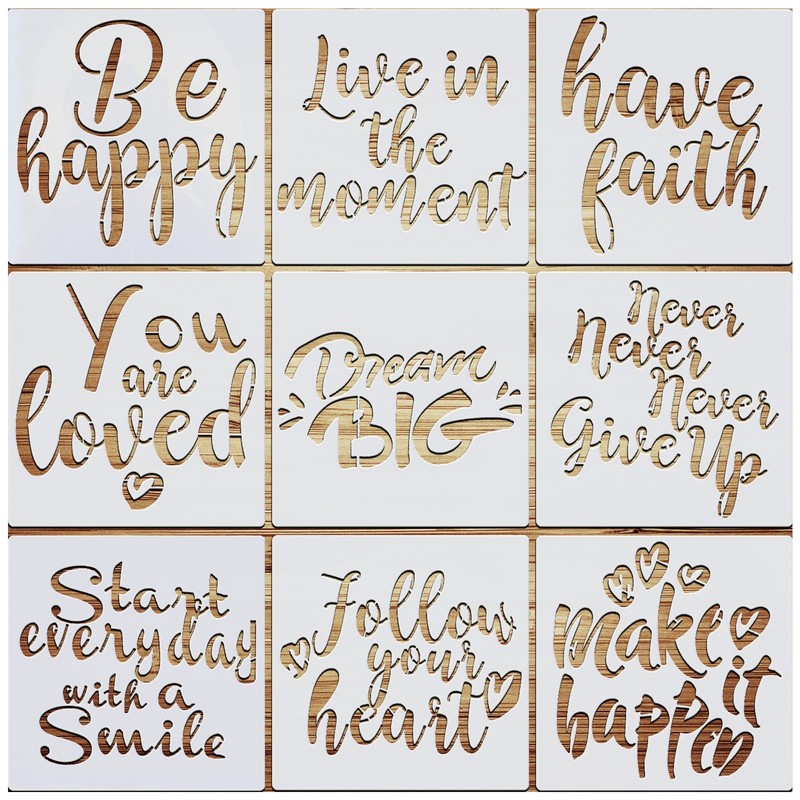 Be
happy
Live in
the
moment
have
faith
You
are
loved
Dream
BIG
Never
Never
Never
Give Up
Start
everyday
with a
Smile
Follow
your
heart
make
it
happen